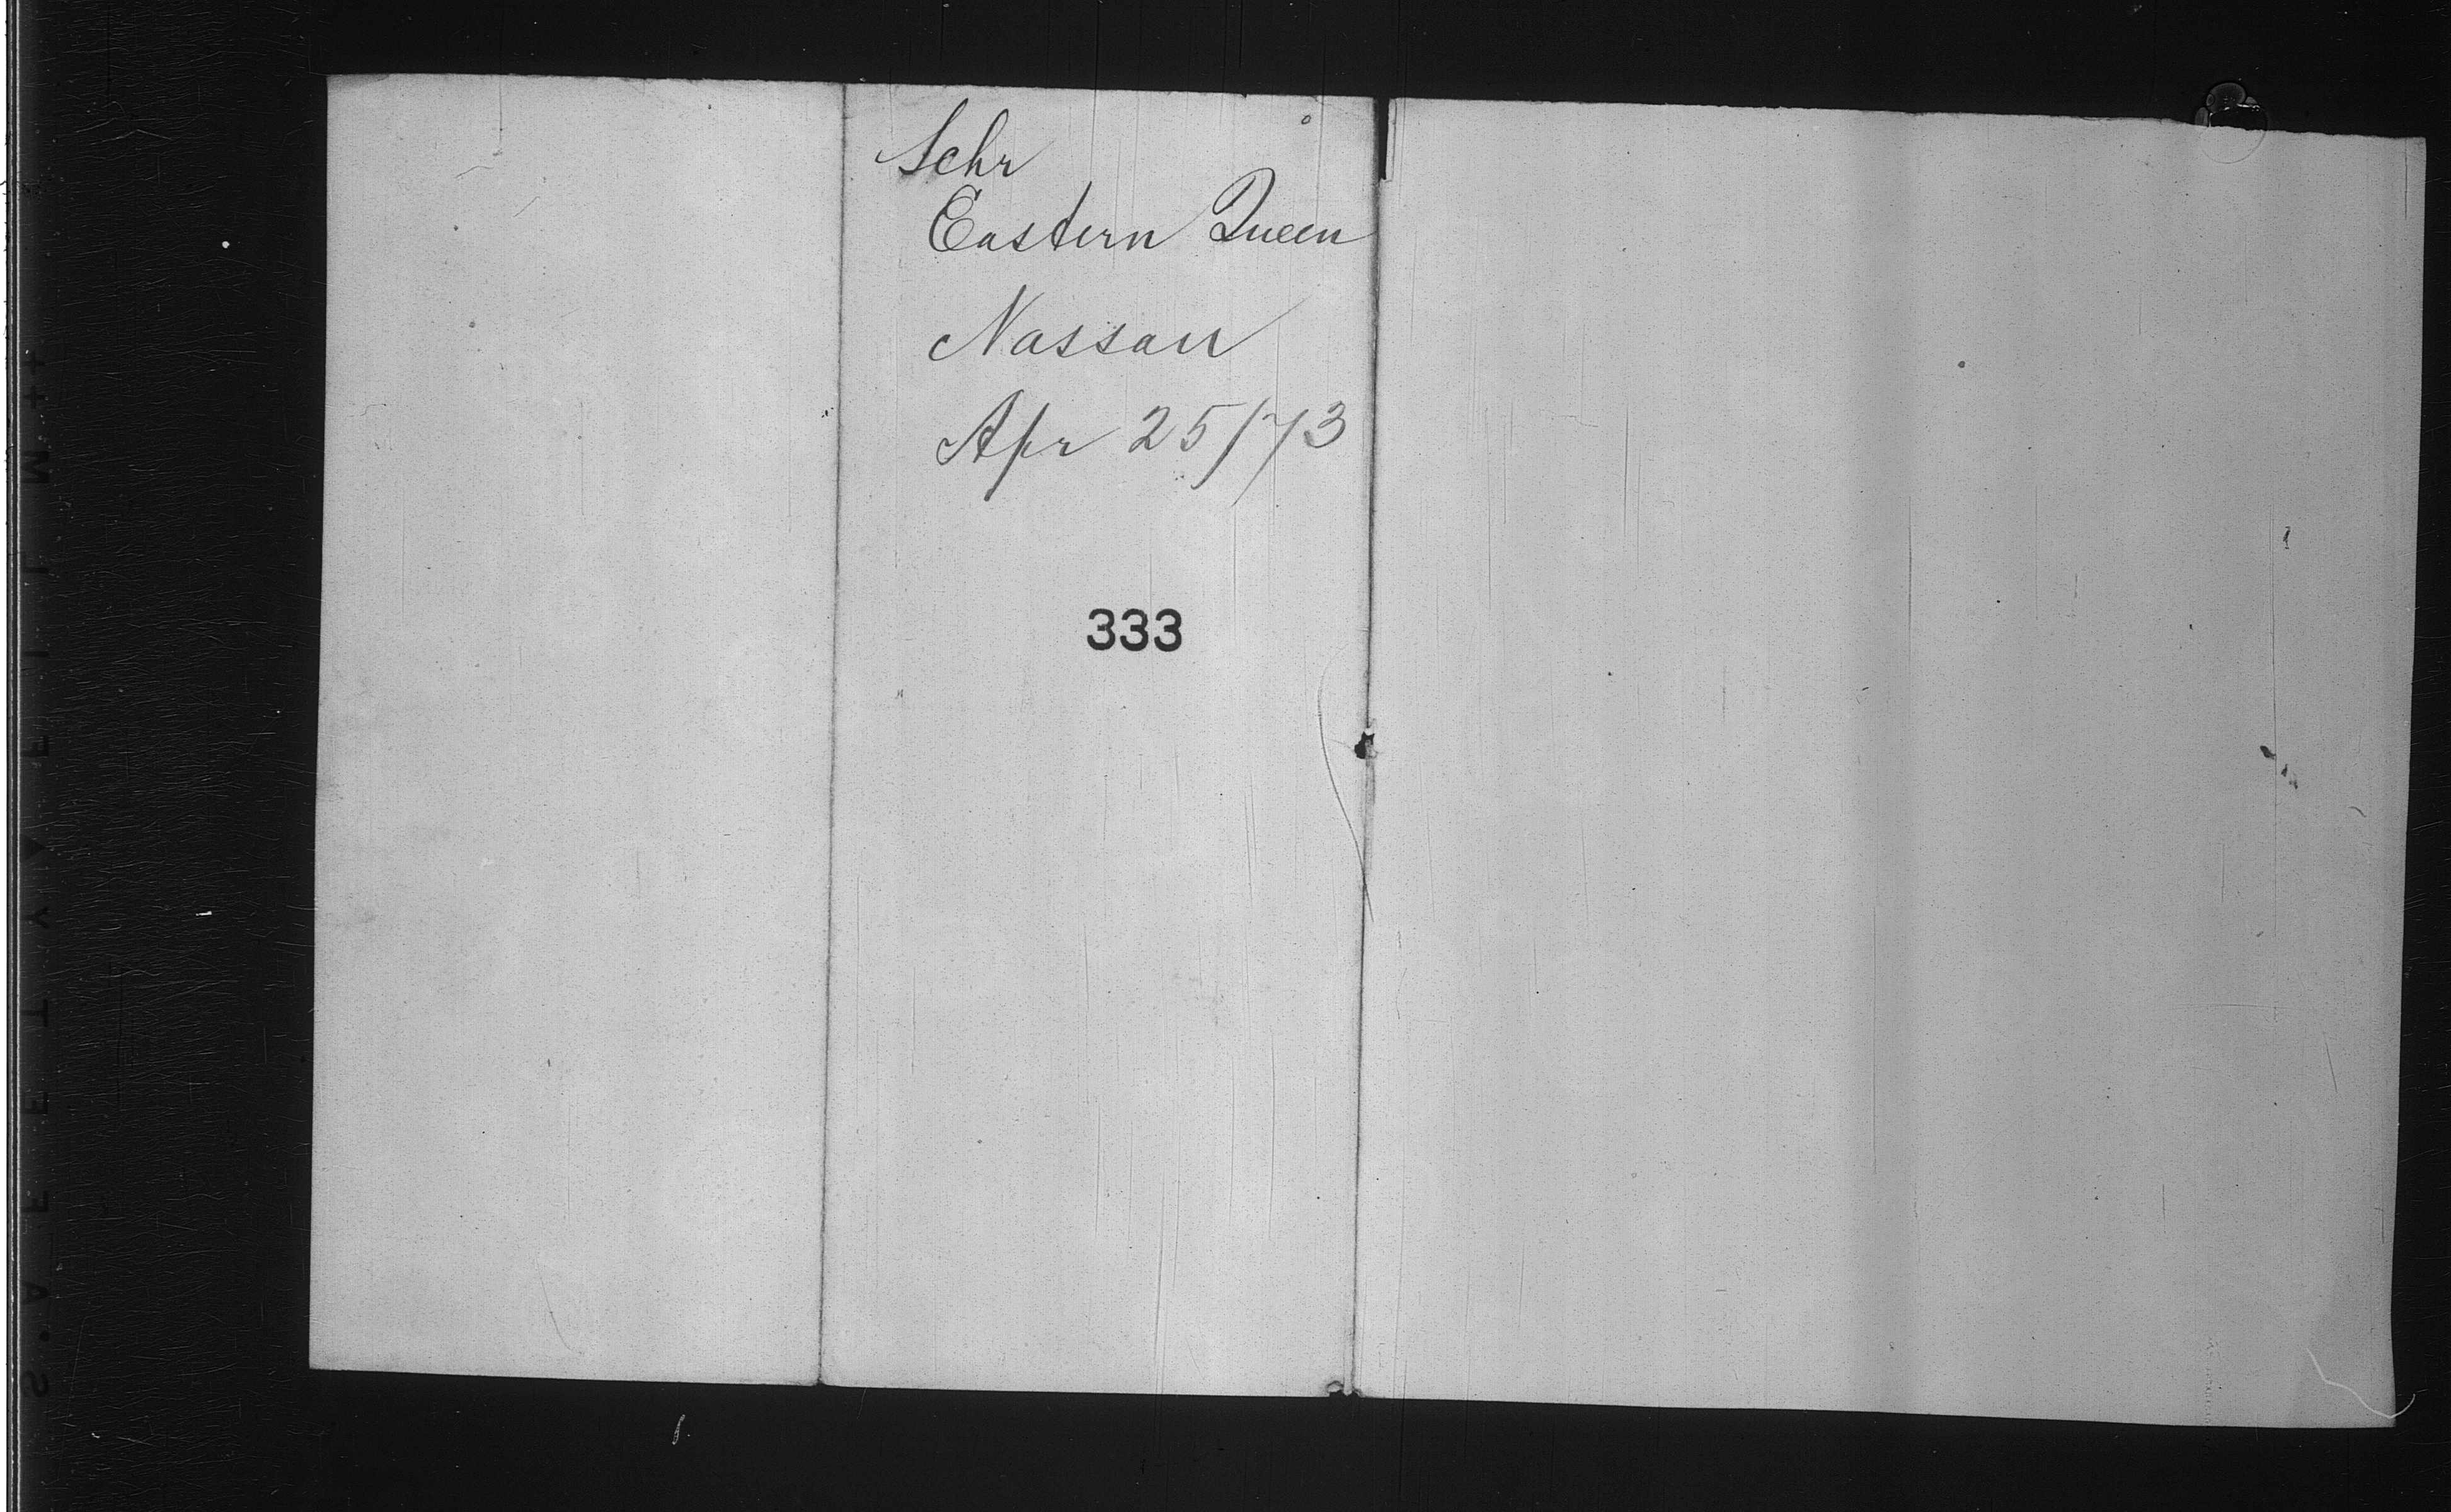 Schr
Eastern Queen
Nassau
Apr 25/73
333